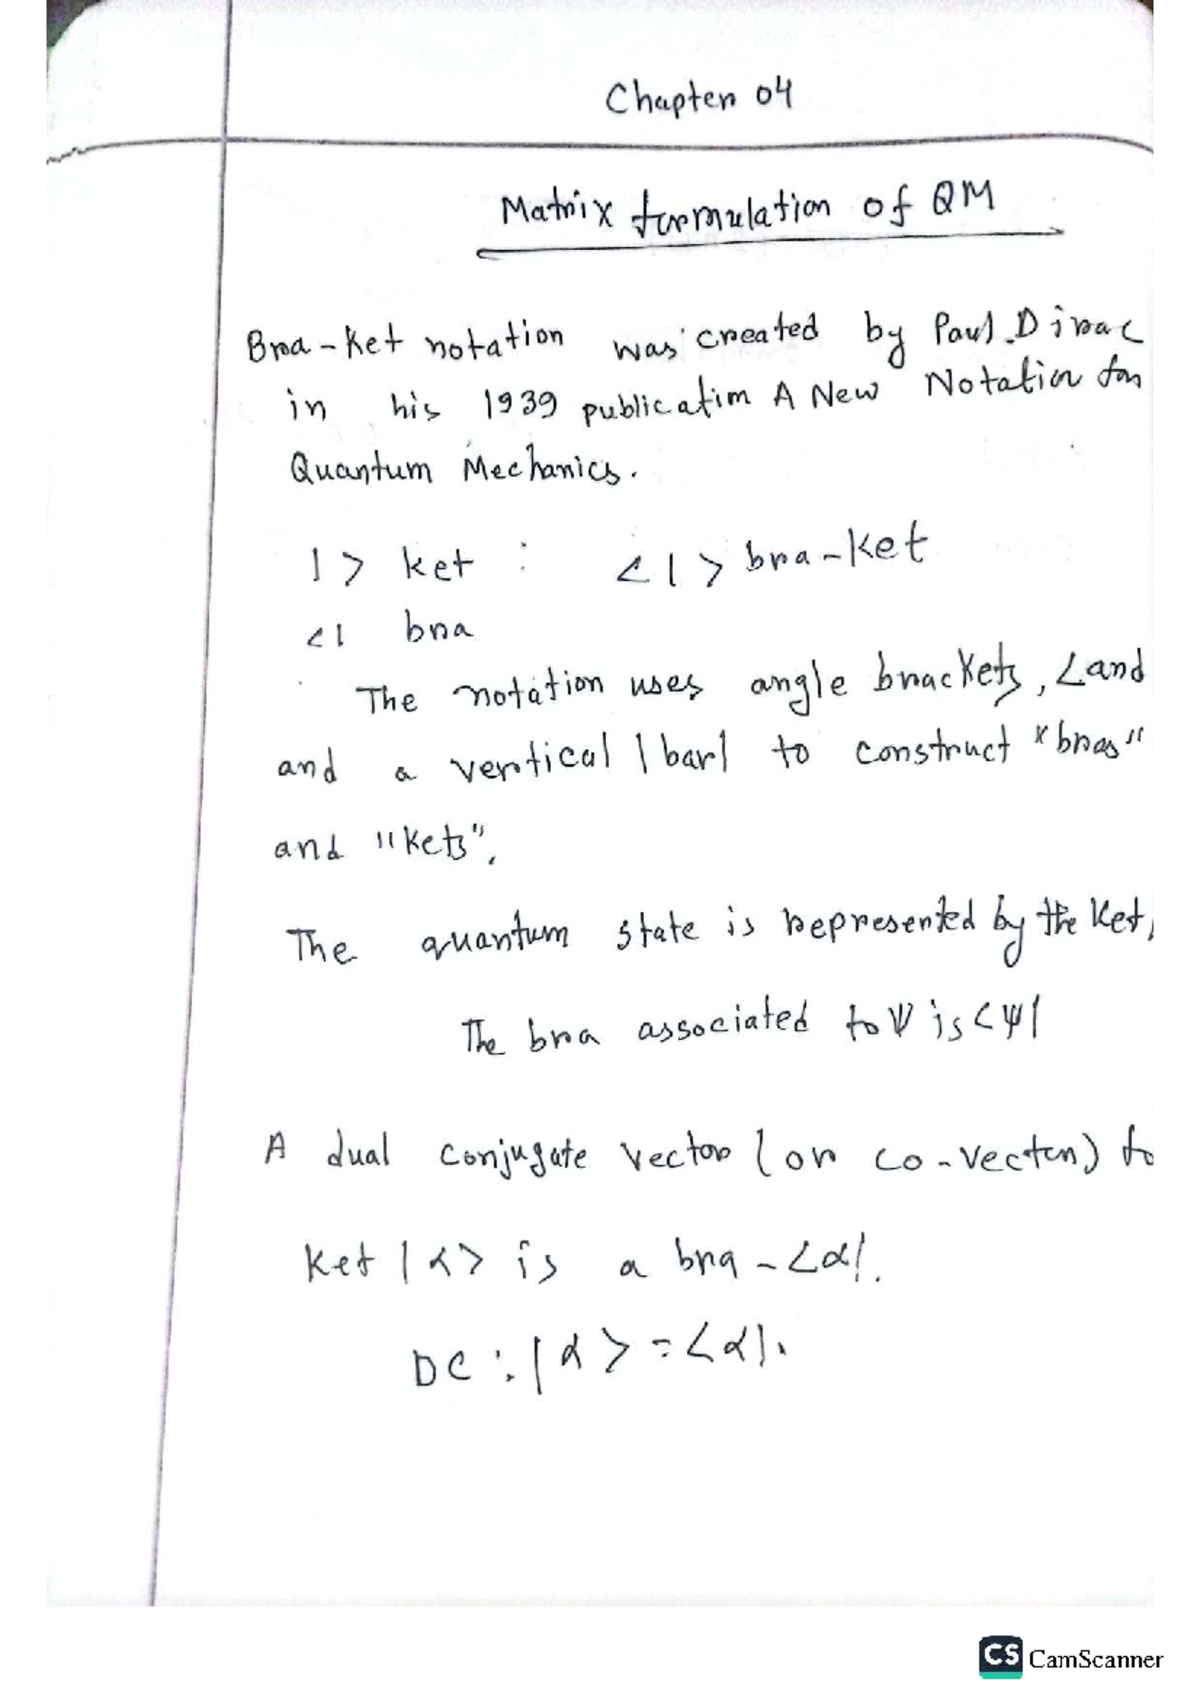 Chapter 04
Matrix formulation of QM
Bra-Ket notation was created by Paul Dirac
in his 1939 publication A New Notation for
Quantum Mechanics.
| > ket : < | > bra-ket
< | bra
The notation uses angle brackets, < and
and a vertical | bar | to construct "bras"
and "kets",
The quantum state is represented by the ket,
The bra associated to ψ is < ψ |
A dual conjugate vector (or co-vector) to
ket | α > is a bra - < α |.
DC : | α > = < α |.
CS CamScanner